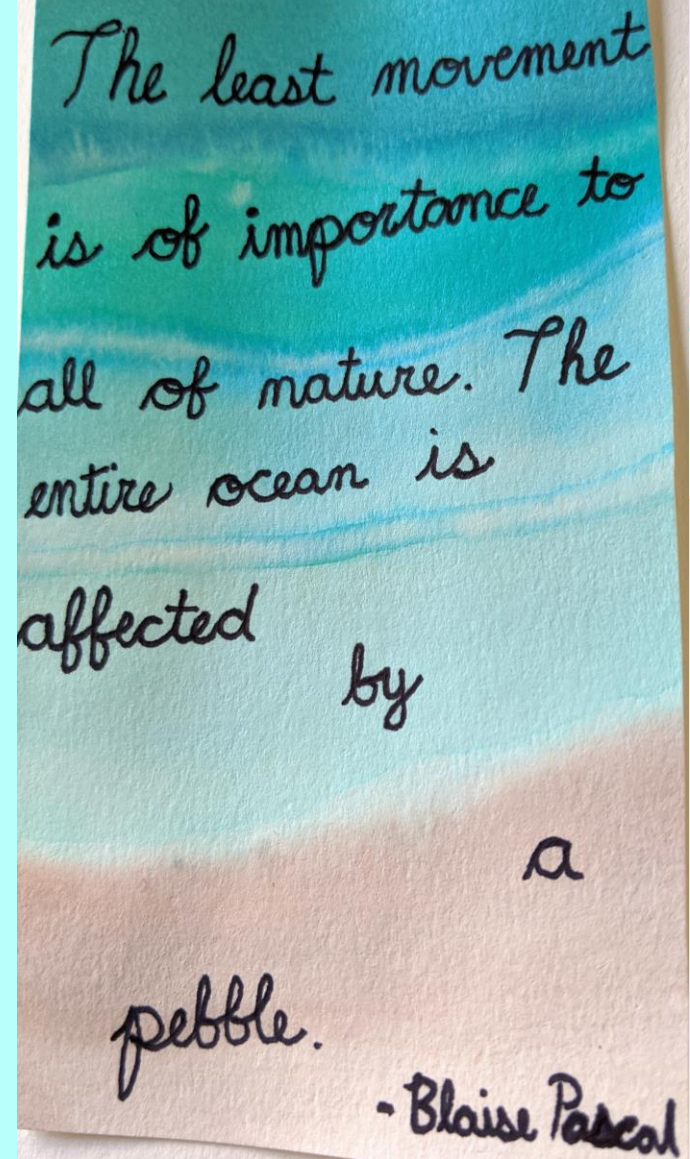 The least movement
is of importance to
all of nature. The
entire ocean is
affected
by
a
pebble.
- Blaise Pascal